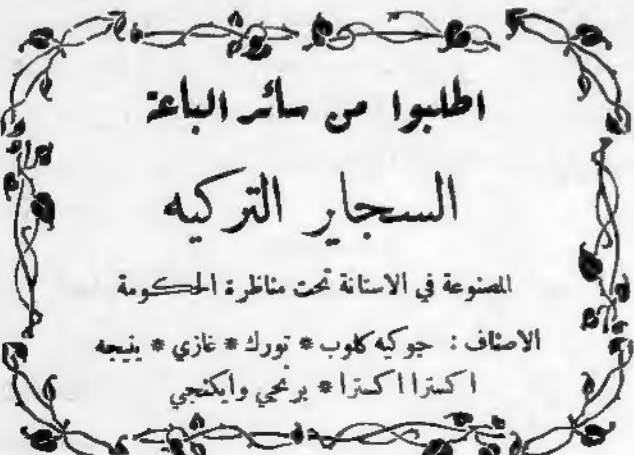 اطلبوا من سائر الباعة
السجاير التركيه
المصنوعة في الاستانة تحت مناظرة الحكومة
الاصناف : جوكيه كلوب * تورك * غازي * ينيجه
اكسترا اكسترا * برنجي وايكنجي